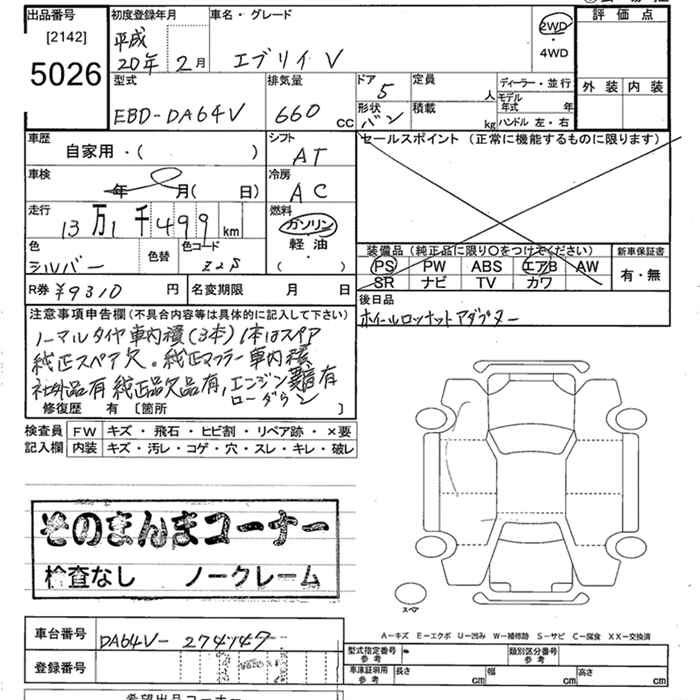 出品番号
[2142]
5026
初度登録年月
平成
20年 2月
車名・グレード
エブリイ V
2WD
・
4WD
評価点
外装 内装
型式
EBD-DA64V
排気量
660 CC
ドア 5
形状 バン
定員 人
積載 kg
ディーラー・並行
モデル年式 年
ハンドル 左・右
車歴
自家用・( )
シフト
AT
セールスポイント (正常に機能するものに限ります)
車検
年 月( 日)
冷房
AC
走行
13万1千499km
燃料
ガソリン
軽油
( )
色
シルバー
色替
色コード
Z2S
装備品 (純正品に限り〇をつけてください)
PS PW ABS エアB AW
SR ナビ TV カワ
新車保証書
有・無
R券 ¥9310 円
名変期限 月 日
後日品
ホイールロックナットアダプター
注意事項申告欄(不具合内容等は具体的に記入して下さい)
ノーマルタイヤ車内積(3本)1本はスペア
純正スペア欠。純正マフラー車内積
社外品有 純正品欠品有,エンジン異音有
ローダウン
修復歴 有 〔箇所 〕
検査員記入欄
FW キズ・飛石・ヒビ割・リペア跡・×要
内装 キズ・汚レ・コゲ・穴・スレ・キレ・破レ
そのまんまコーナー
検査なし ノークレーム
スペア
A-キズ E-エクボ U-凹み W-補修跡 S-サビ C-腐食 XX-交換済
車台番号 DA64V-274147
登録番号
型式指定番号 参考
類別区分番号 参考
車庫証明用 参考 長さ cm 幅 cm 高さ cm
希望出品コーナー